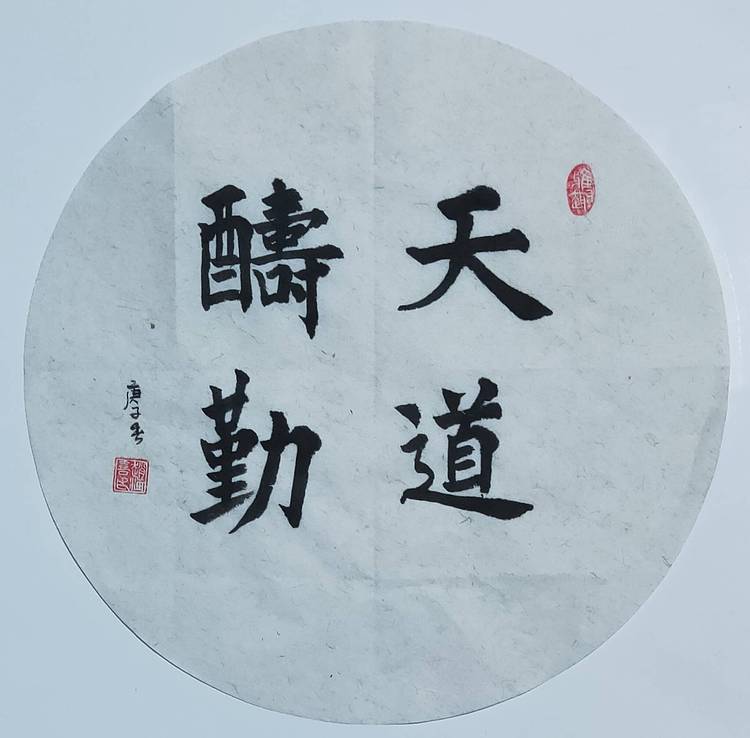 天道
醻勤
庚子冬